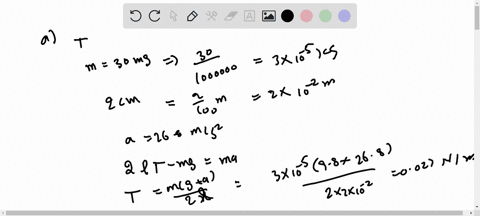 a) T
m = 30 mg => 30/1000000 = 3 × 10^-5 kg
2 cm = 2/100 m = 2 × 10^-2 m
a = 26.8 m/s^2
2 l T - mg = ma
T = m(g+a)/2l = 3×10^-5 (9.8 + 26.8)/2×2×10^2 = 0.027 N/m